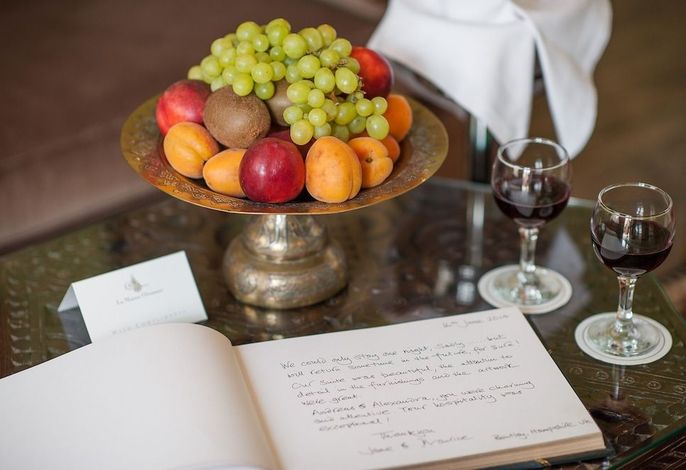 La Maison Ottomane
With Compliments
16th June 2014
We could only stay one night, sadly ... but
will return sometime in the future, for sure!
Our suite was beautiful, the attention to
detail in the furnishings and the artwork
were great.
Andreas & Alexandra, you were charming
and attentive. Your hospitality was
exceptional!
Thankyou
Jane & Maurice
Bentley, Hampshire UK